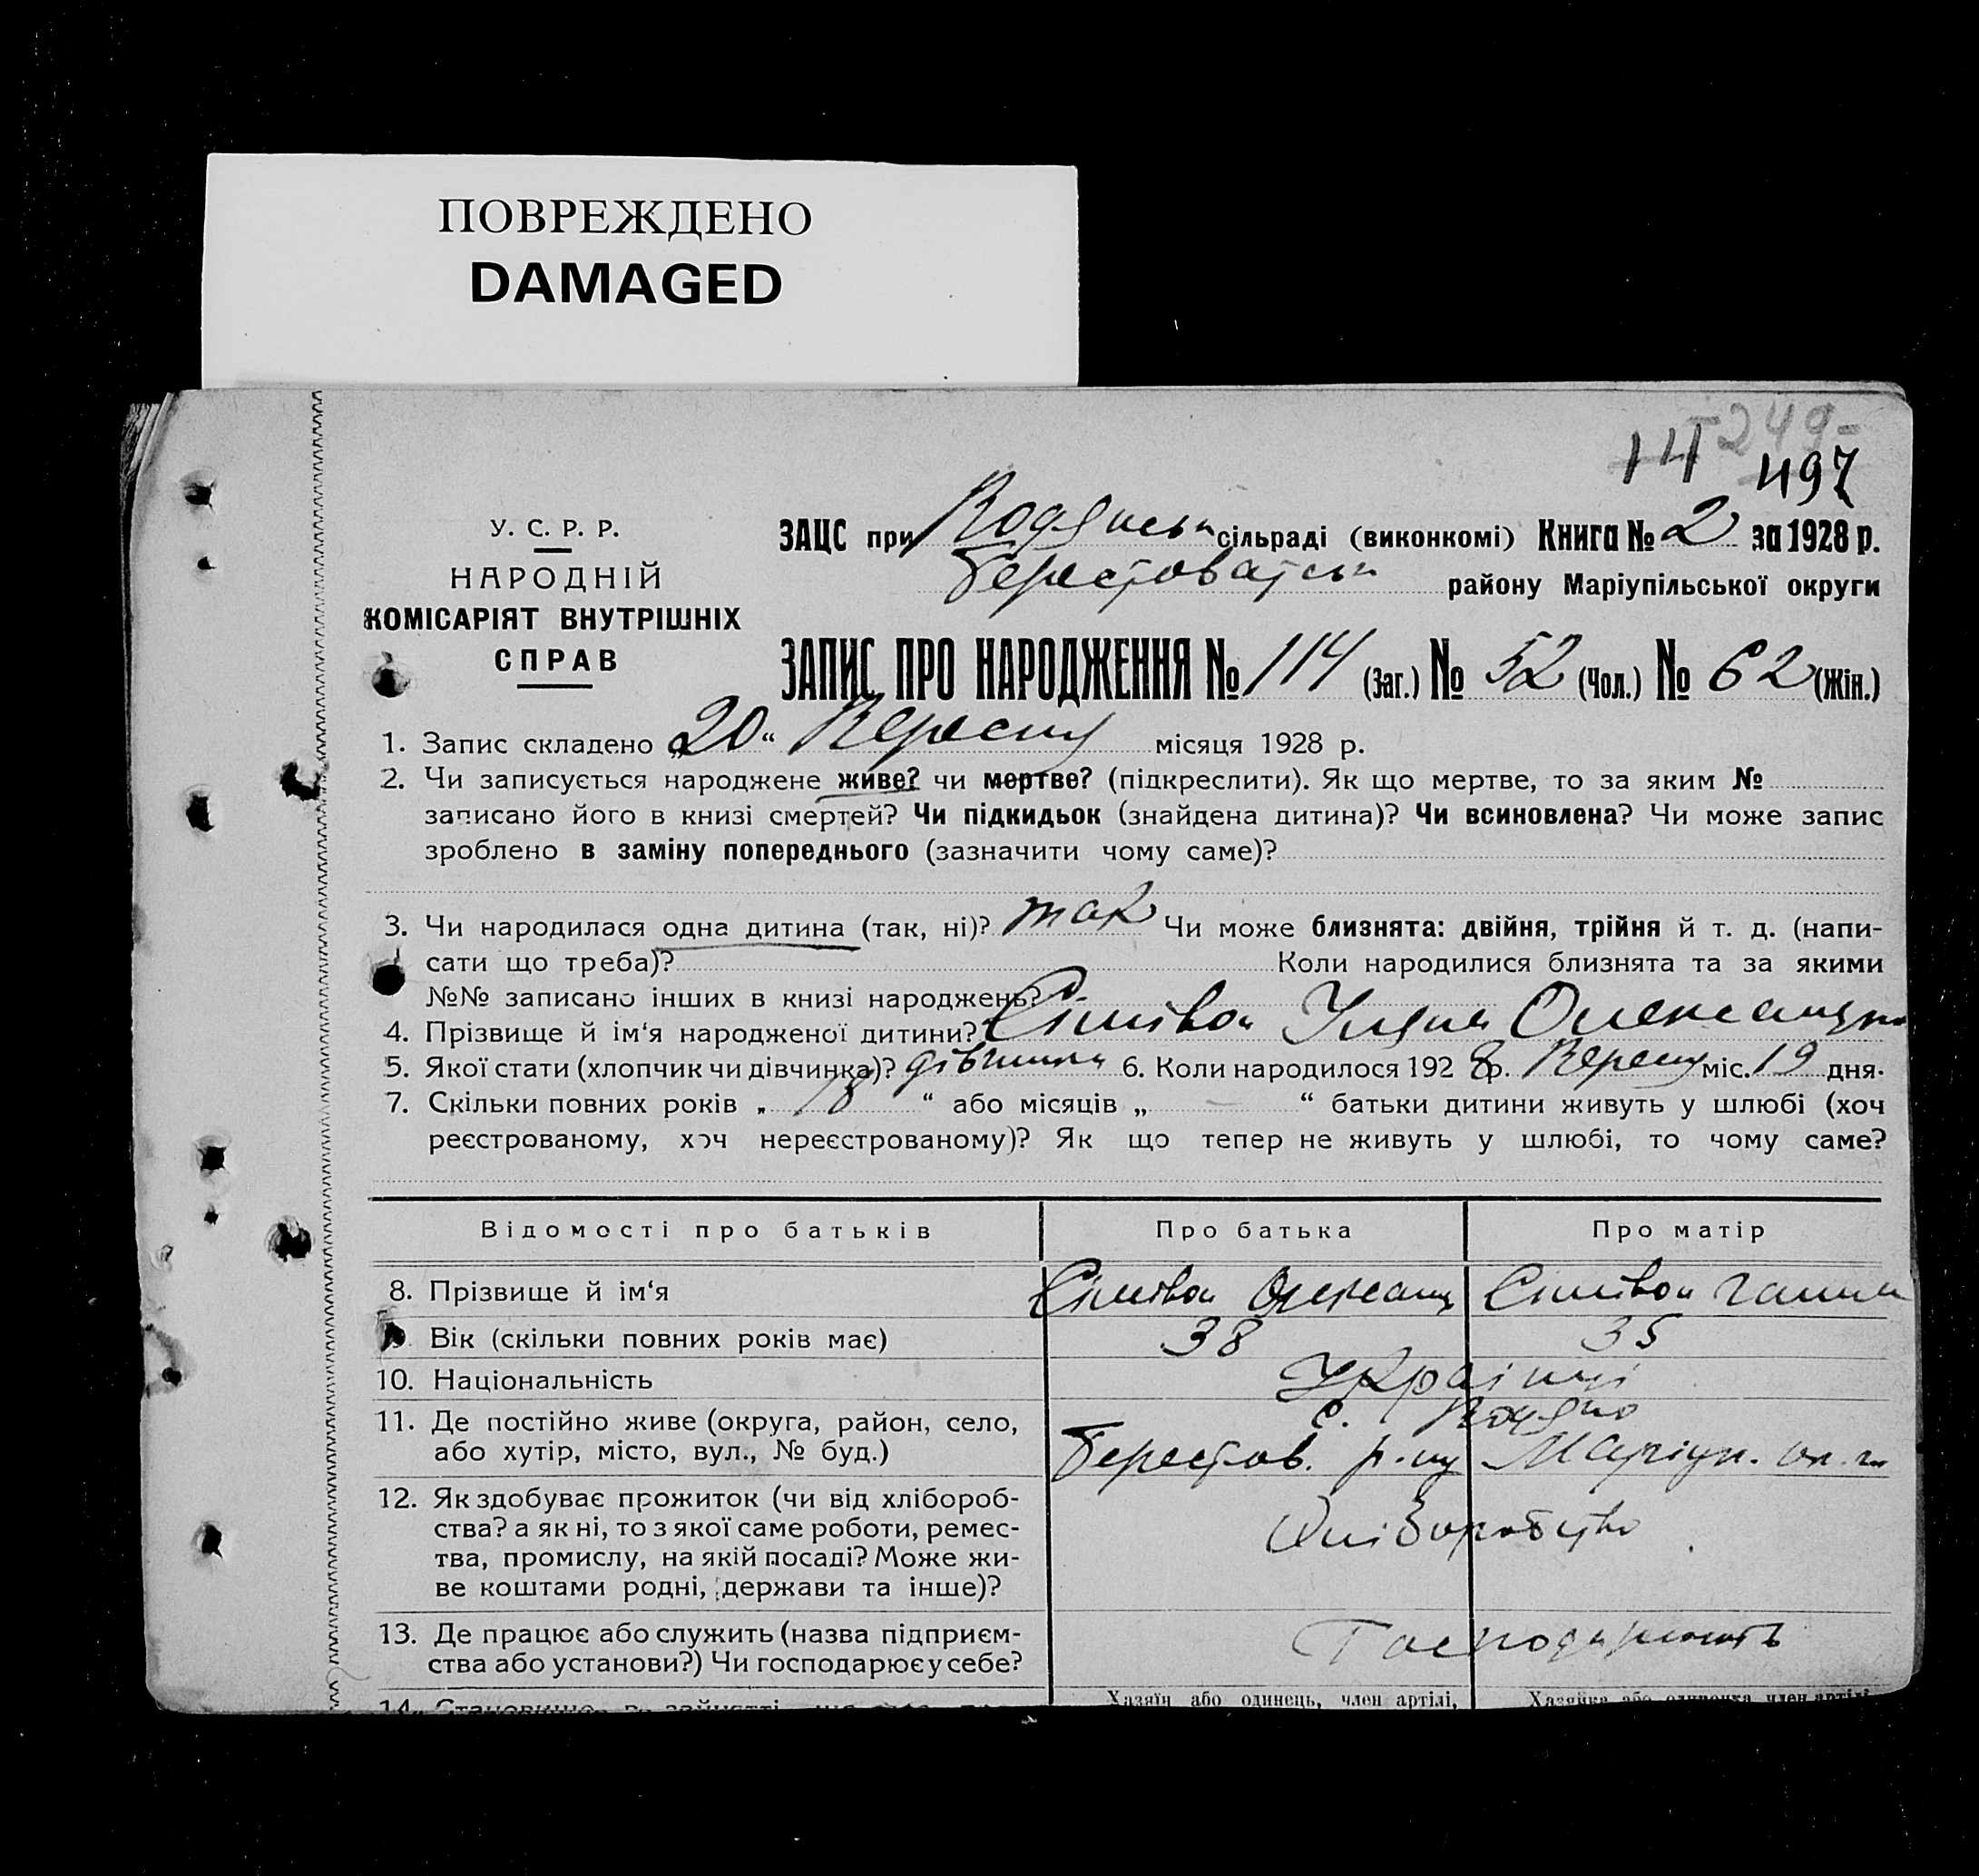 ПОВРЕЖДЕНО
DAMAGED
-249-
114
497
У. С. Р. Р.
НАРОДНІЙ
КОМІСАРІЯТ ВНУТРІШНІХ
СПРАВ
ЗАЦС при Водянськ сільраді (виконкомі) Книга № 2 за 1928 р.
Берестоватськ району Маріупільської округи
ЗАПИС ПРО НАРОДЖЕННЯ № 114 (Заг.) № 52 (Чол.) № 62 (Жін.)
1. Запис складено „20“ Вересня місяця 1928 р.
2. Чи записується народжене живе? чи мертве? (підкреслити). Як що мертве, то за яким №
записано його в книзі смертей? Чи підкидьок (знайдена дитина)? Чи всиновлена? Чи може запис
зроблено в заміну попереднього (зазначити чому саме)?
3. Чи народилася одна дитина (так, ні)? так Чи може близнята: двійня, трійня й т. д. (напи-
сати що треба)? Коли народилися близнята та за якими
№№ записано інших в книзі народжень?
4. Прізвище й ім‘я народженої дитини?
5. Якої стати (хлопчик чи дівчинка)? дівчинка 6. Коли народилося 1928 р. Вересня міс. 19 дня.
7. Скільки повних років „ 18 “ або місяців „ — “ батьки дитини живуть у шлюбі (хоч
реєстрованому, хоч нереєстрованому)? Як що тепер не живуть у шлюбі, то чому саме?
Відомості про батьків Про батька Про матір
8. Прізвище й ім‘я
9. Вік (скільки повних років має) 38 35
10. Національність Українці
11. Де постійно живе (округа, район, село, с. Водяно
або хутір, місто, вул., № буд.) Берестов. р-ну Маріуп. ок-ги
12. Як здобуває прожиток (чи від хлібороб-
ства? а як ні, то з якої саме роботи, ремес- Хліборобство
тва, промислу, на якій посаді? Може жи-
ве коштами родні, держави та інше)?
13. Де працює або служить (назва підприєм- Господарюють
ства або установи?) Чи господарює у себе?
Хазяїн або одинець, член артілі, Хазяйка або одиночка член артілі